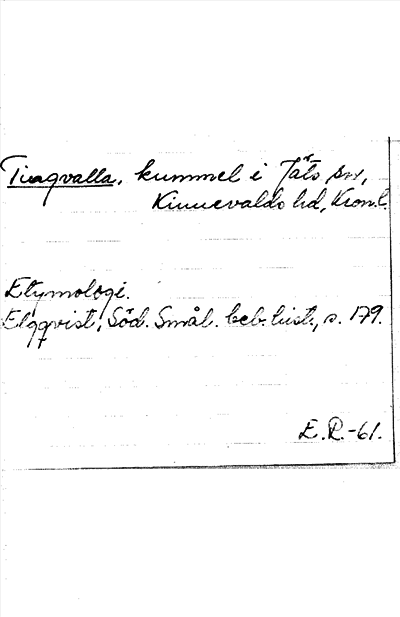 Tingvalla, kummel i Jäts sn,
Kinnevalds hd, Kron.l.
Etymologi.
Elgqvist, Söd. Smål. beb. hist., s. 179.
E.R.-61.